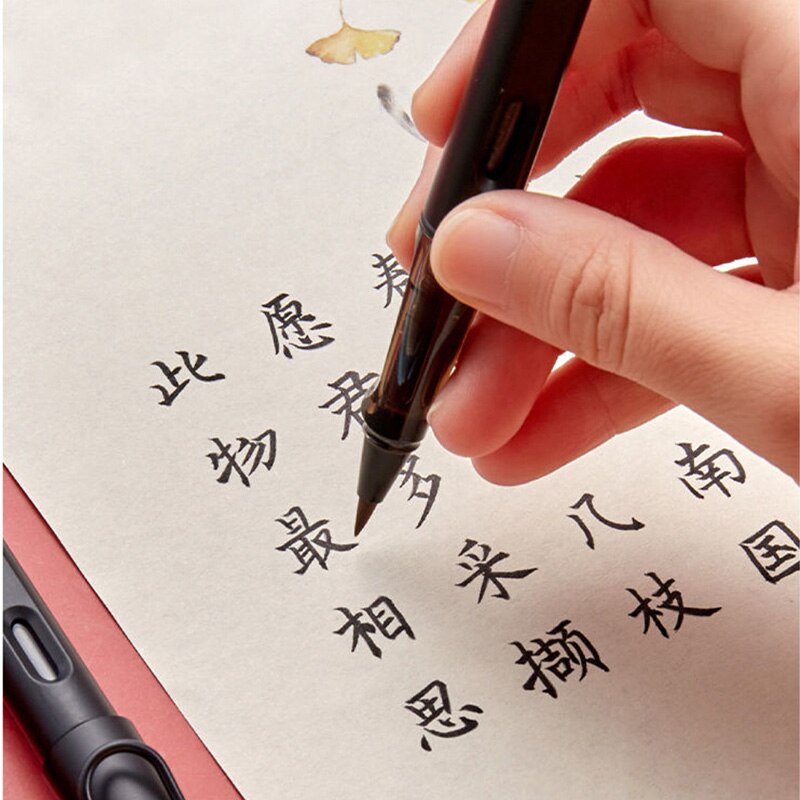 南国
春几枝
愿君多采撷
此物最相思